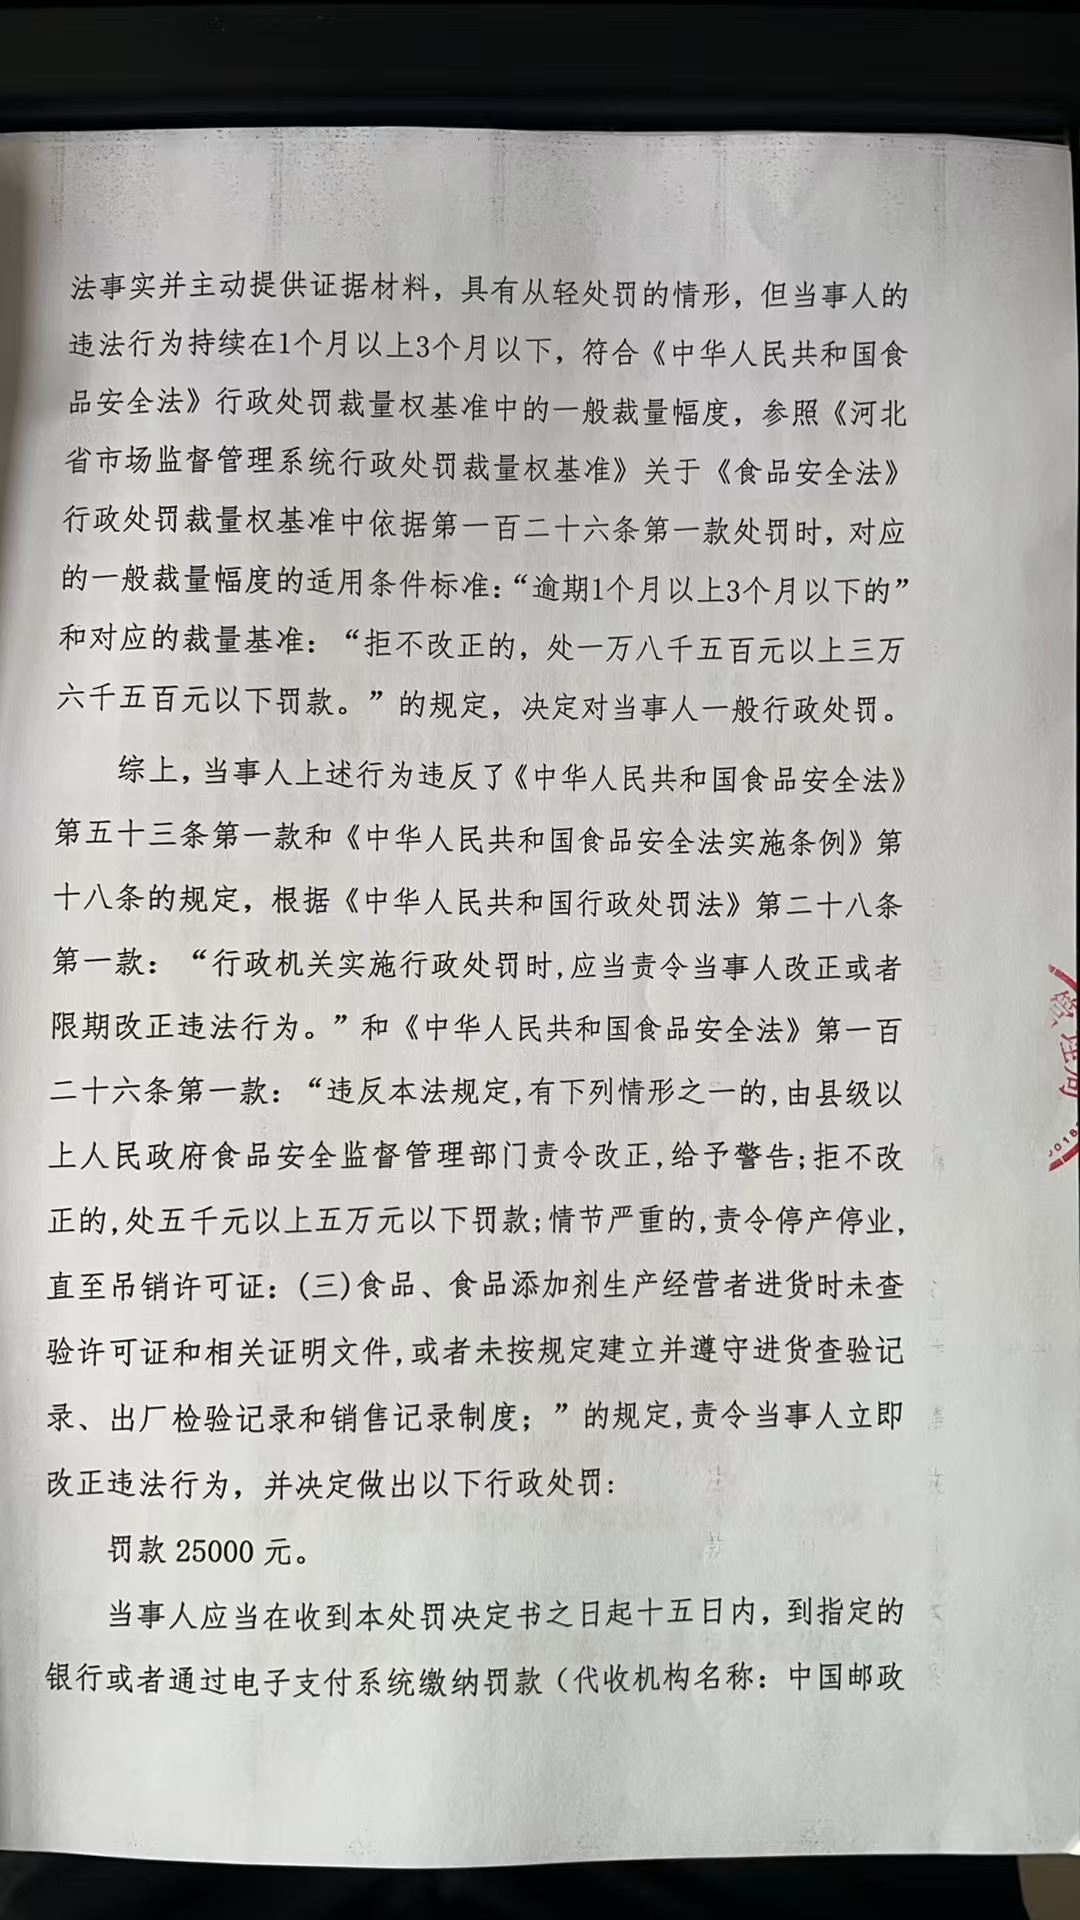 法事实并主动提供证据材料，具有从轻处罚的情形，但当事人的
违法行为持续在1个月以上3个月以下，符合《中华人民共和国食
品安全法》行政处罚裁量权基准中的一般裁量幅度，参照《河北
省市场监督管理系统行政处罚裁量权基准》关于《食品安全法》
行政处罚裁量权基准中依据第一百二十六条第一款处罚时，对应
的一般裁量幅度的适用条件标准：“逾期1个月以上3个月以下的”
和对应的裁量基准：“拒不改正的，处一万八千五百元以上三万
六千五百元以下罚款。”的规定，决定对当事人一般行政处罚。
综上，当事人上述行为违反了《中华人民共和国食品安全法》
第五十三条第一款和《中华人民共和国食品安全法实施条例》第
十八条的规定，根据《中华人民共和国行政处罚法》第二十八条
第一款：“行政机关实施行政处罚时,应当责令当事人改正或者
限期改正违法行为。”和《中华人民共和国食品安全法》第一百
二十六条第一款：“违反本法规定,有下列情形之一的,由县级以
上人民政府食品安全监督管理部门责令改正,给予警告;拒不改
正的,处五千元以上五万元以下罚款;情节严重的,责令停产停业,
直至吊销许可证：(三)食品、食品添加剂生产经营者进货时未查
验许可证和相关证明文件,或者未按规定建立并遵守进货查验记
录、出厂检验记录和销售记录制度；”的规定,责令当事人立即
改正违法行为，并决定做出以下行政处罚:
罚款 25000 元。
当事人应当在收到本处罚决定书之日起十五日内，到指定的
银行或者通过电子支付系统缴纳罚款（代收机构名称：中国邮政